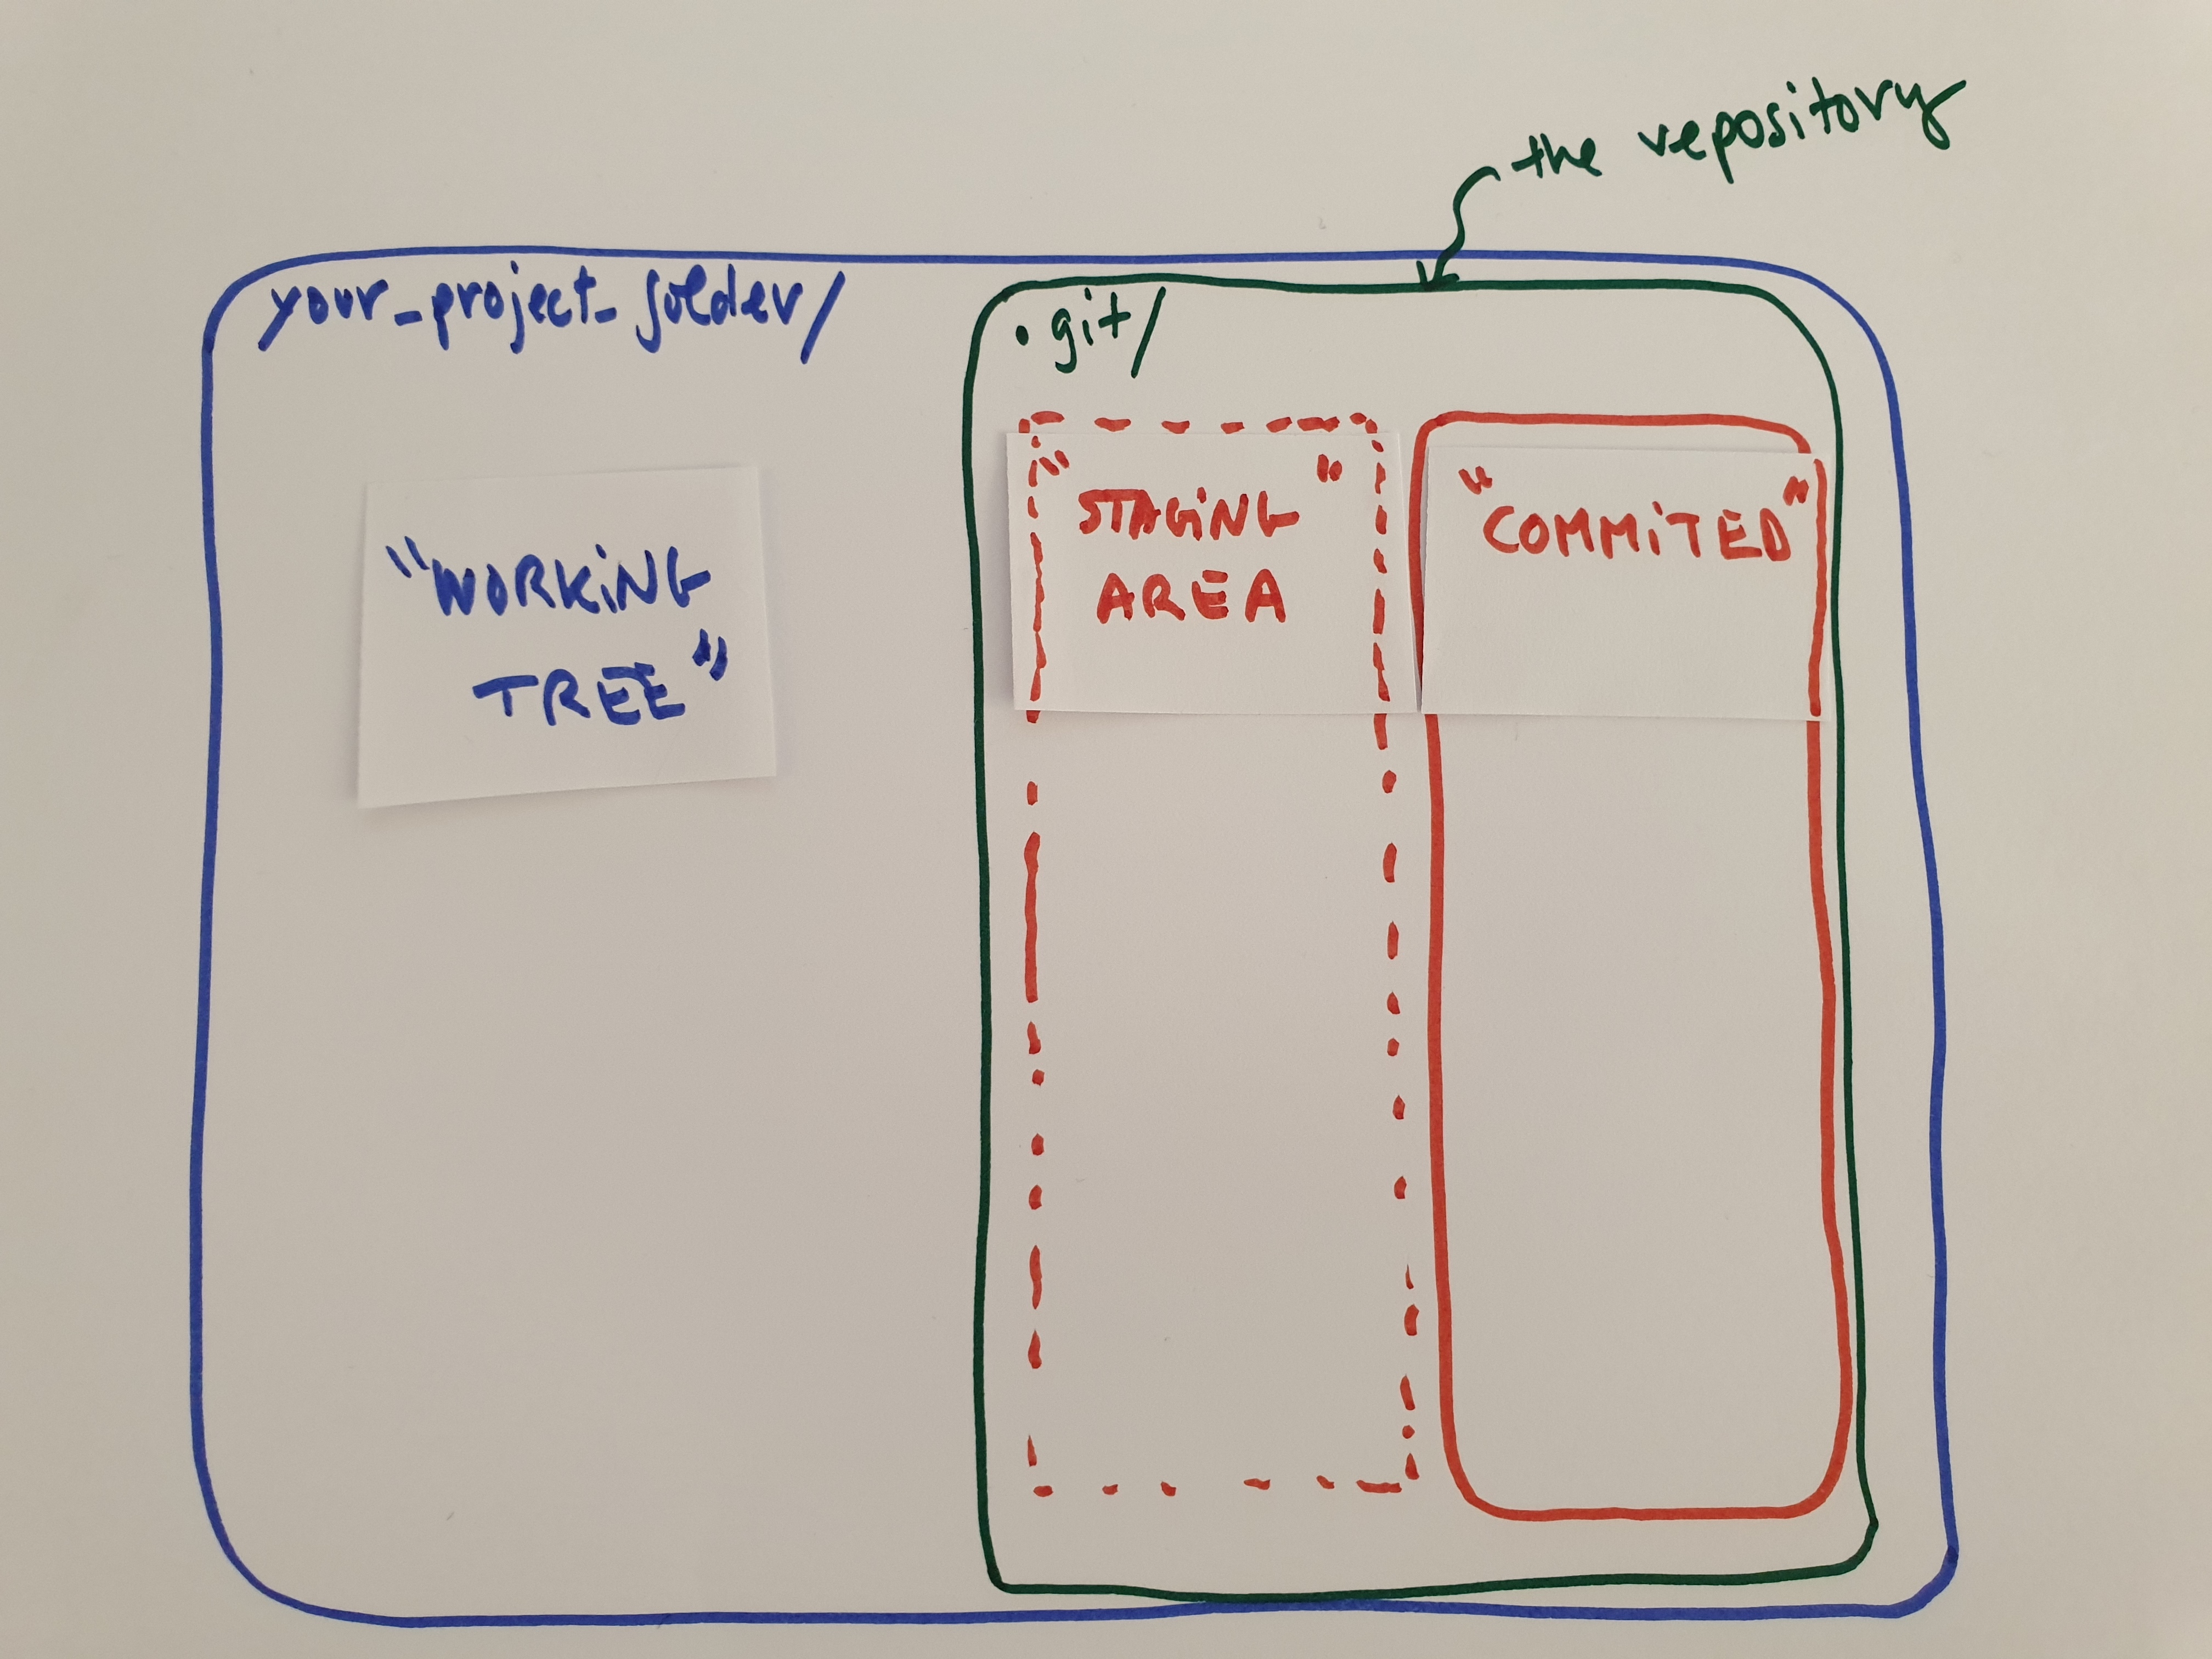 the repository
your_project_folder/
.git/
"WORKING
TREE"
"STAGING"
AREA
"COMMITED"